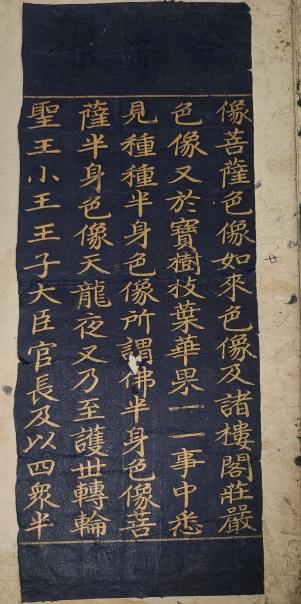 像菩薩色像如來色像及諸樓閣莊嚴
色像又於寶樹枝葉華果一一事中悉
見種種半身色像所謂佛半身色像菩
薩半身色像天龍夜叉乃至護世轉輪
聖王小王王子大臣官長及以四衆半